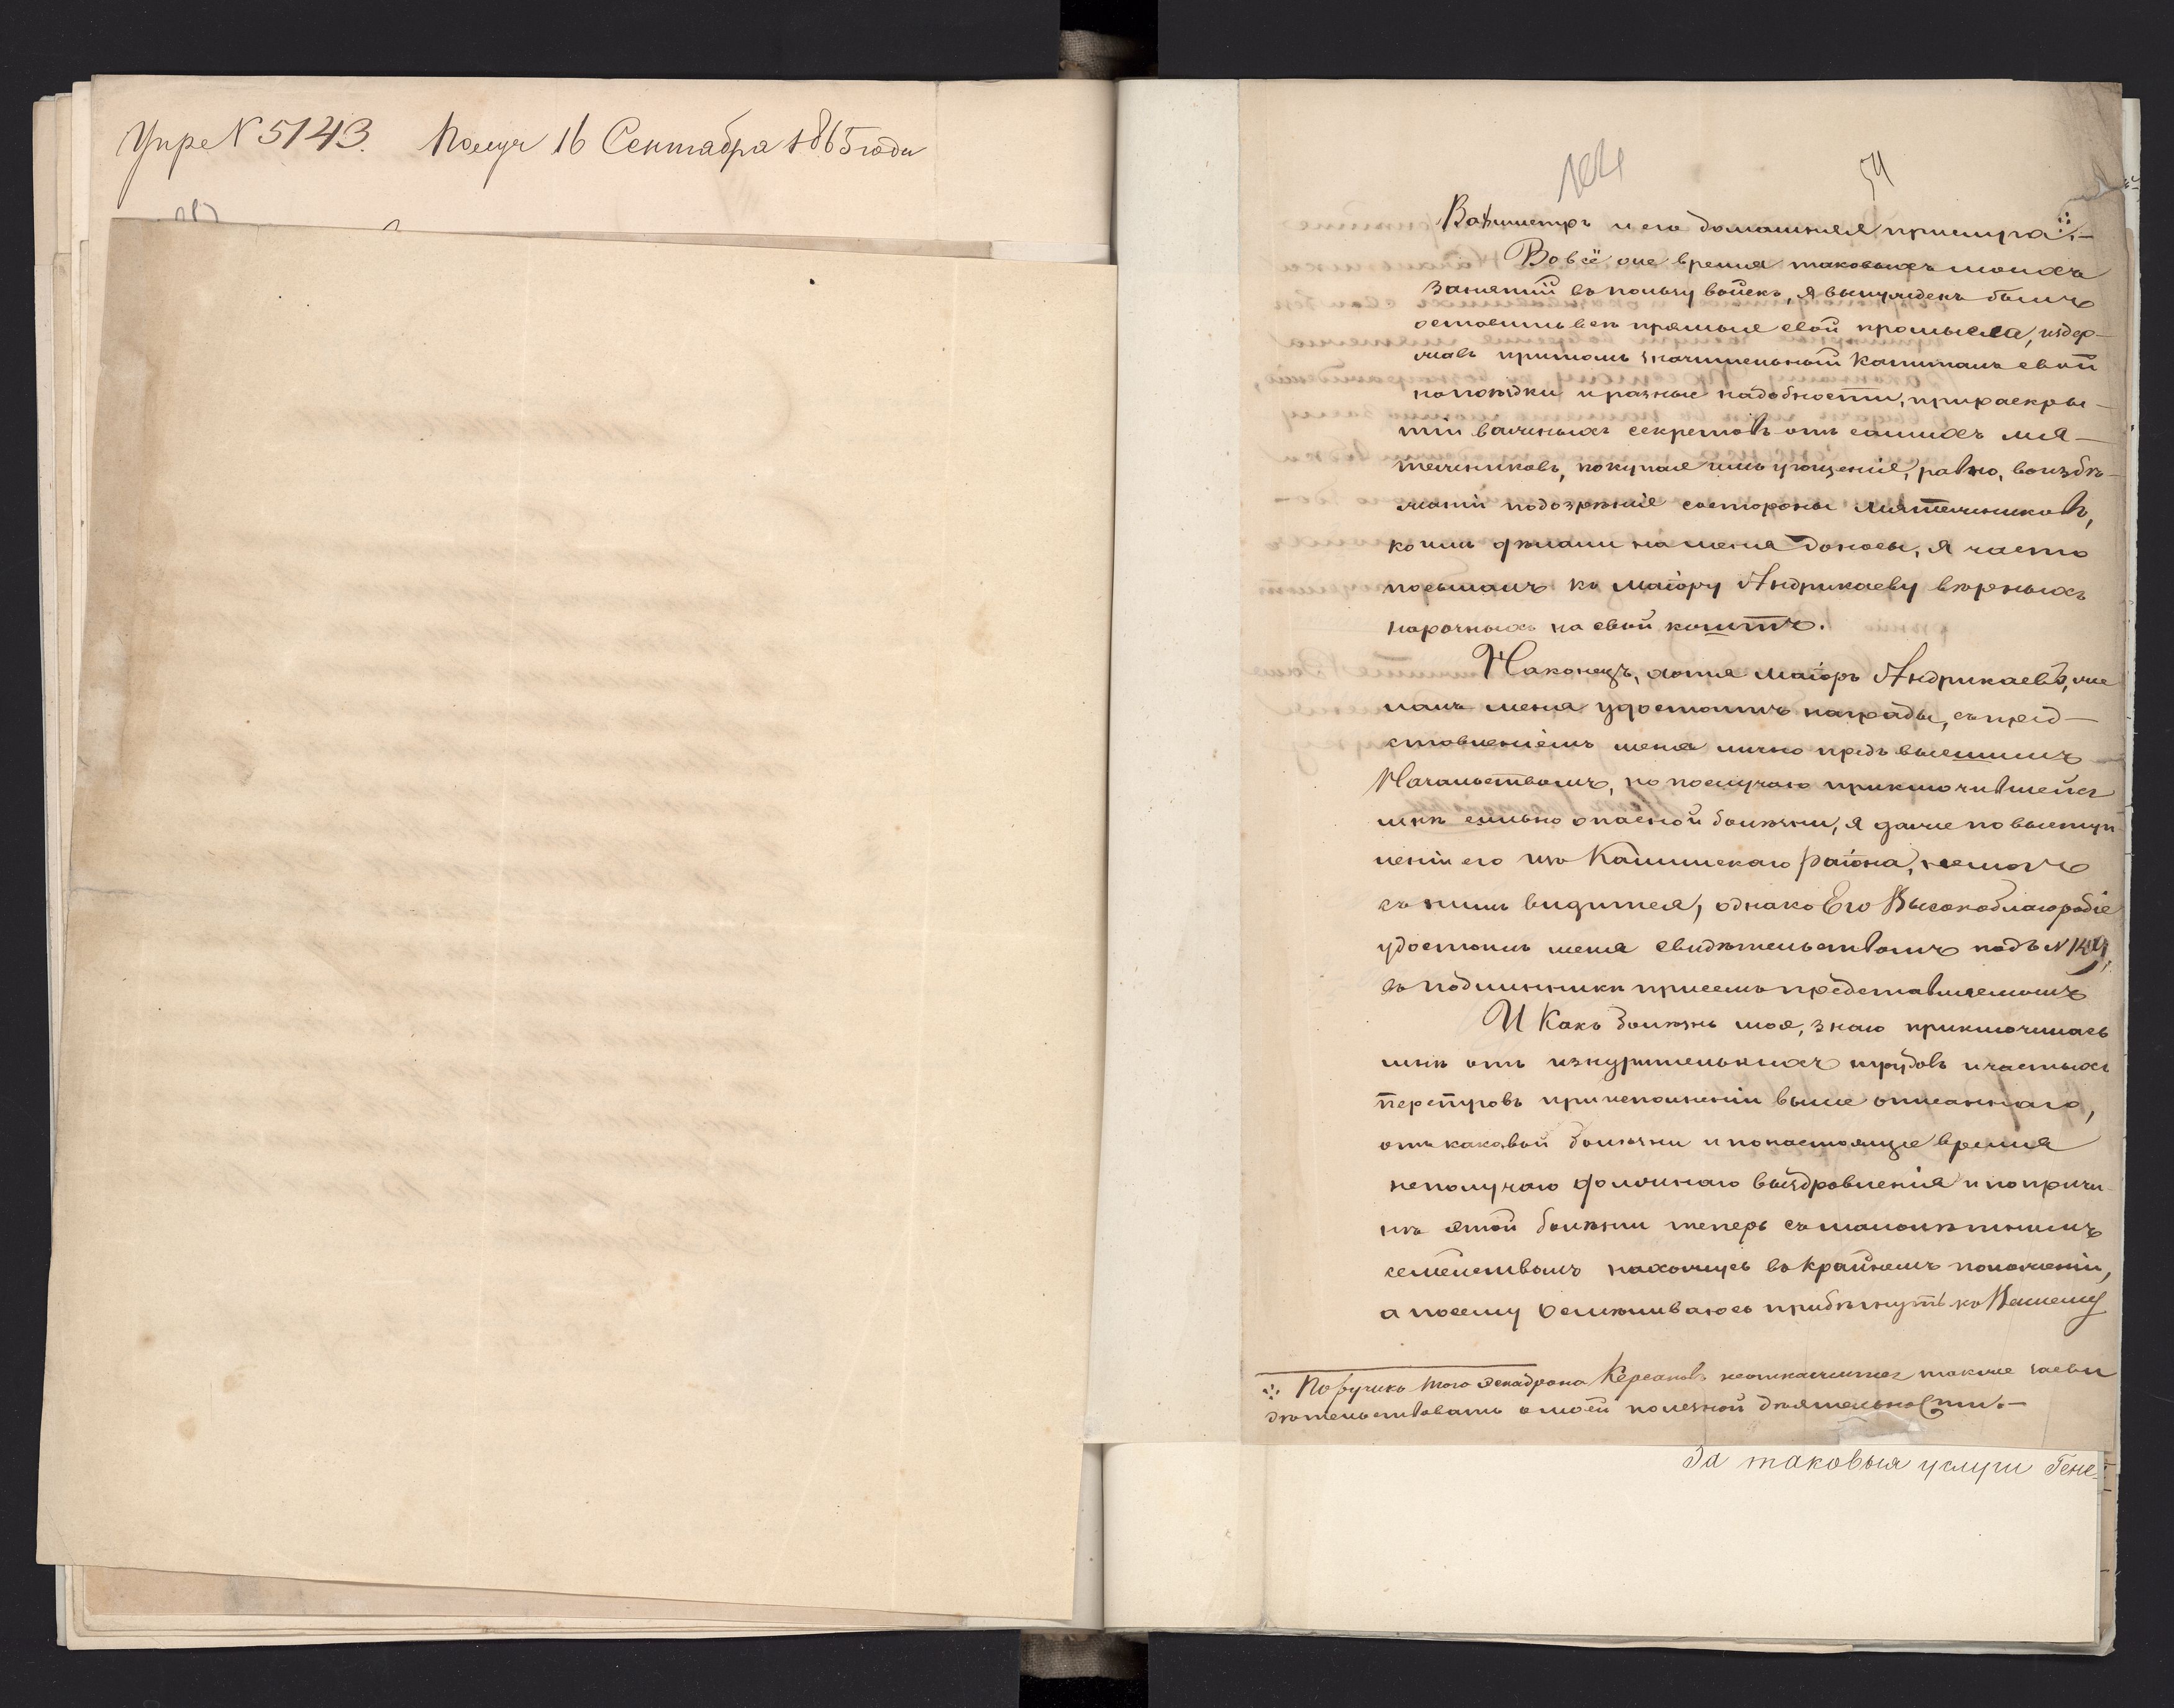 Упре N 5143. Получ 16 Сентабра 1865 года
104
54
Вахмистръ и его домашняя прислуга ⁘ –
Во всё оне время таковыхъ моихъ
занятій въ пользу войскъ, я вынужденъ былъ
оставить всѣ прямые свои промысла, издер–
жавъ притомъ значительный Капиталъ свой
на поѣздки и разные надобности, при раскры–
тіи важныхъ секретовъ отъ самихъ мя–
тежниковъ, покупая имъ угощеніе, равно, во избѣ–
жаніи подозрѣніе состороны мятежниковъ,
коими дѣлали на меня доносы, я часто
посылалъ къ маіору Андрикаеву вѣрныхъ
нарочныхъ на свой коштъ.
Наконецъ, хотя маіоръ Андрикаевъ, же
лалъ меня удостоитъ награды, съ пред–
ставленіемъ меня лично предъ высшимъ
Начальствомъ, но по случаю приключившейся
мнѣ сильно опасной болѣзни, я даже по выступ
леніи его изъ района, немогъ
съ нимъ видится, однако Его Высокоблагородіе
удостоилъ меня свидѣтельствомъ подъ N
въ подлинники присемъ представляемомъ
И Какъ болѣзнь моя, знаю приключилась
мнѣ отъ изнурительныхъ трудовъ и частыхъ
при исполненіи выше описаннаго,
отъ каковой болѣзни и по настоящие время
не получаю должнаго выздровленія и по причи
нѣ этой болѣзни теперь съ малолѣтнимъ
семействомъ нахожусь въ крайнемъ положеніи,
а посему осмѣливаюсь прибѣгнуть къ Вашему
⁘ Поручикъ того эскадрона Керсановъ неоткажится также засви
дѣтельствовать о моей полезной дѣятельности. –
За таковыя услуги Гене–